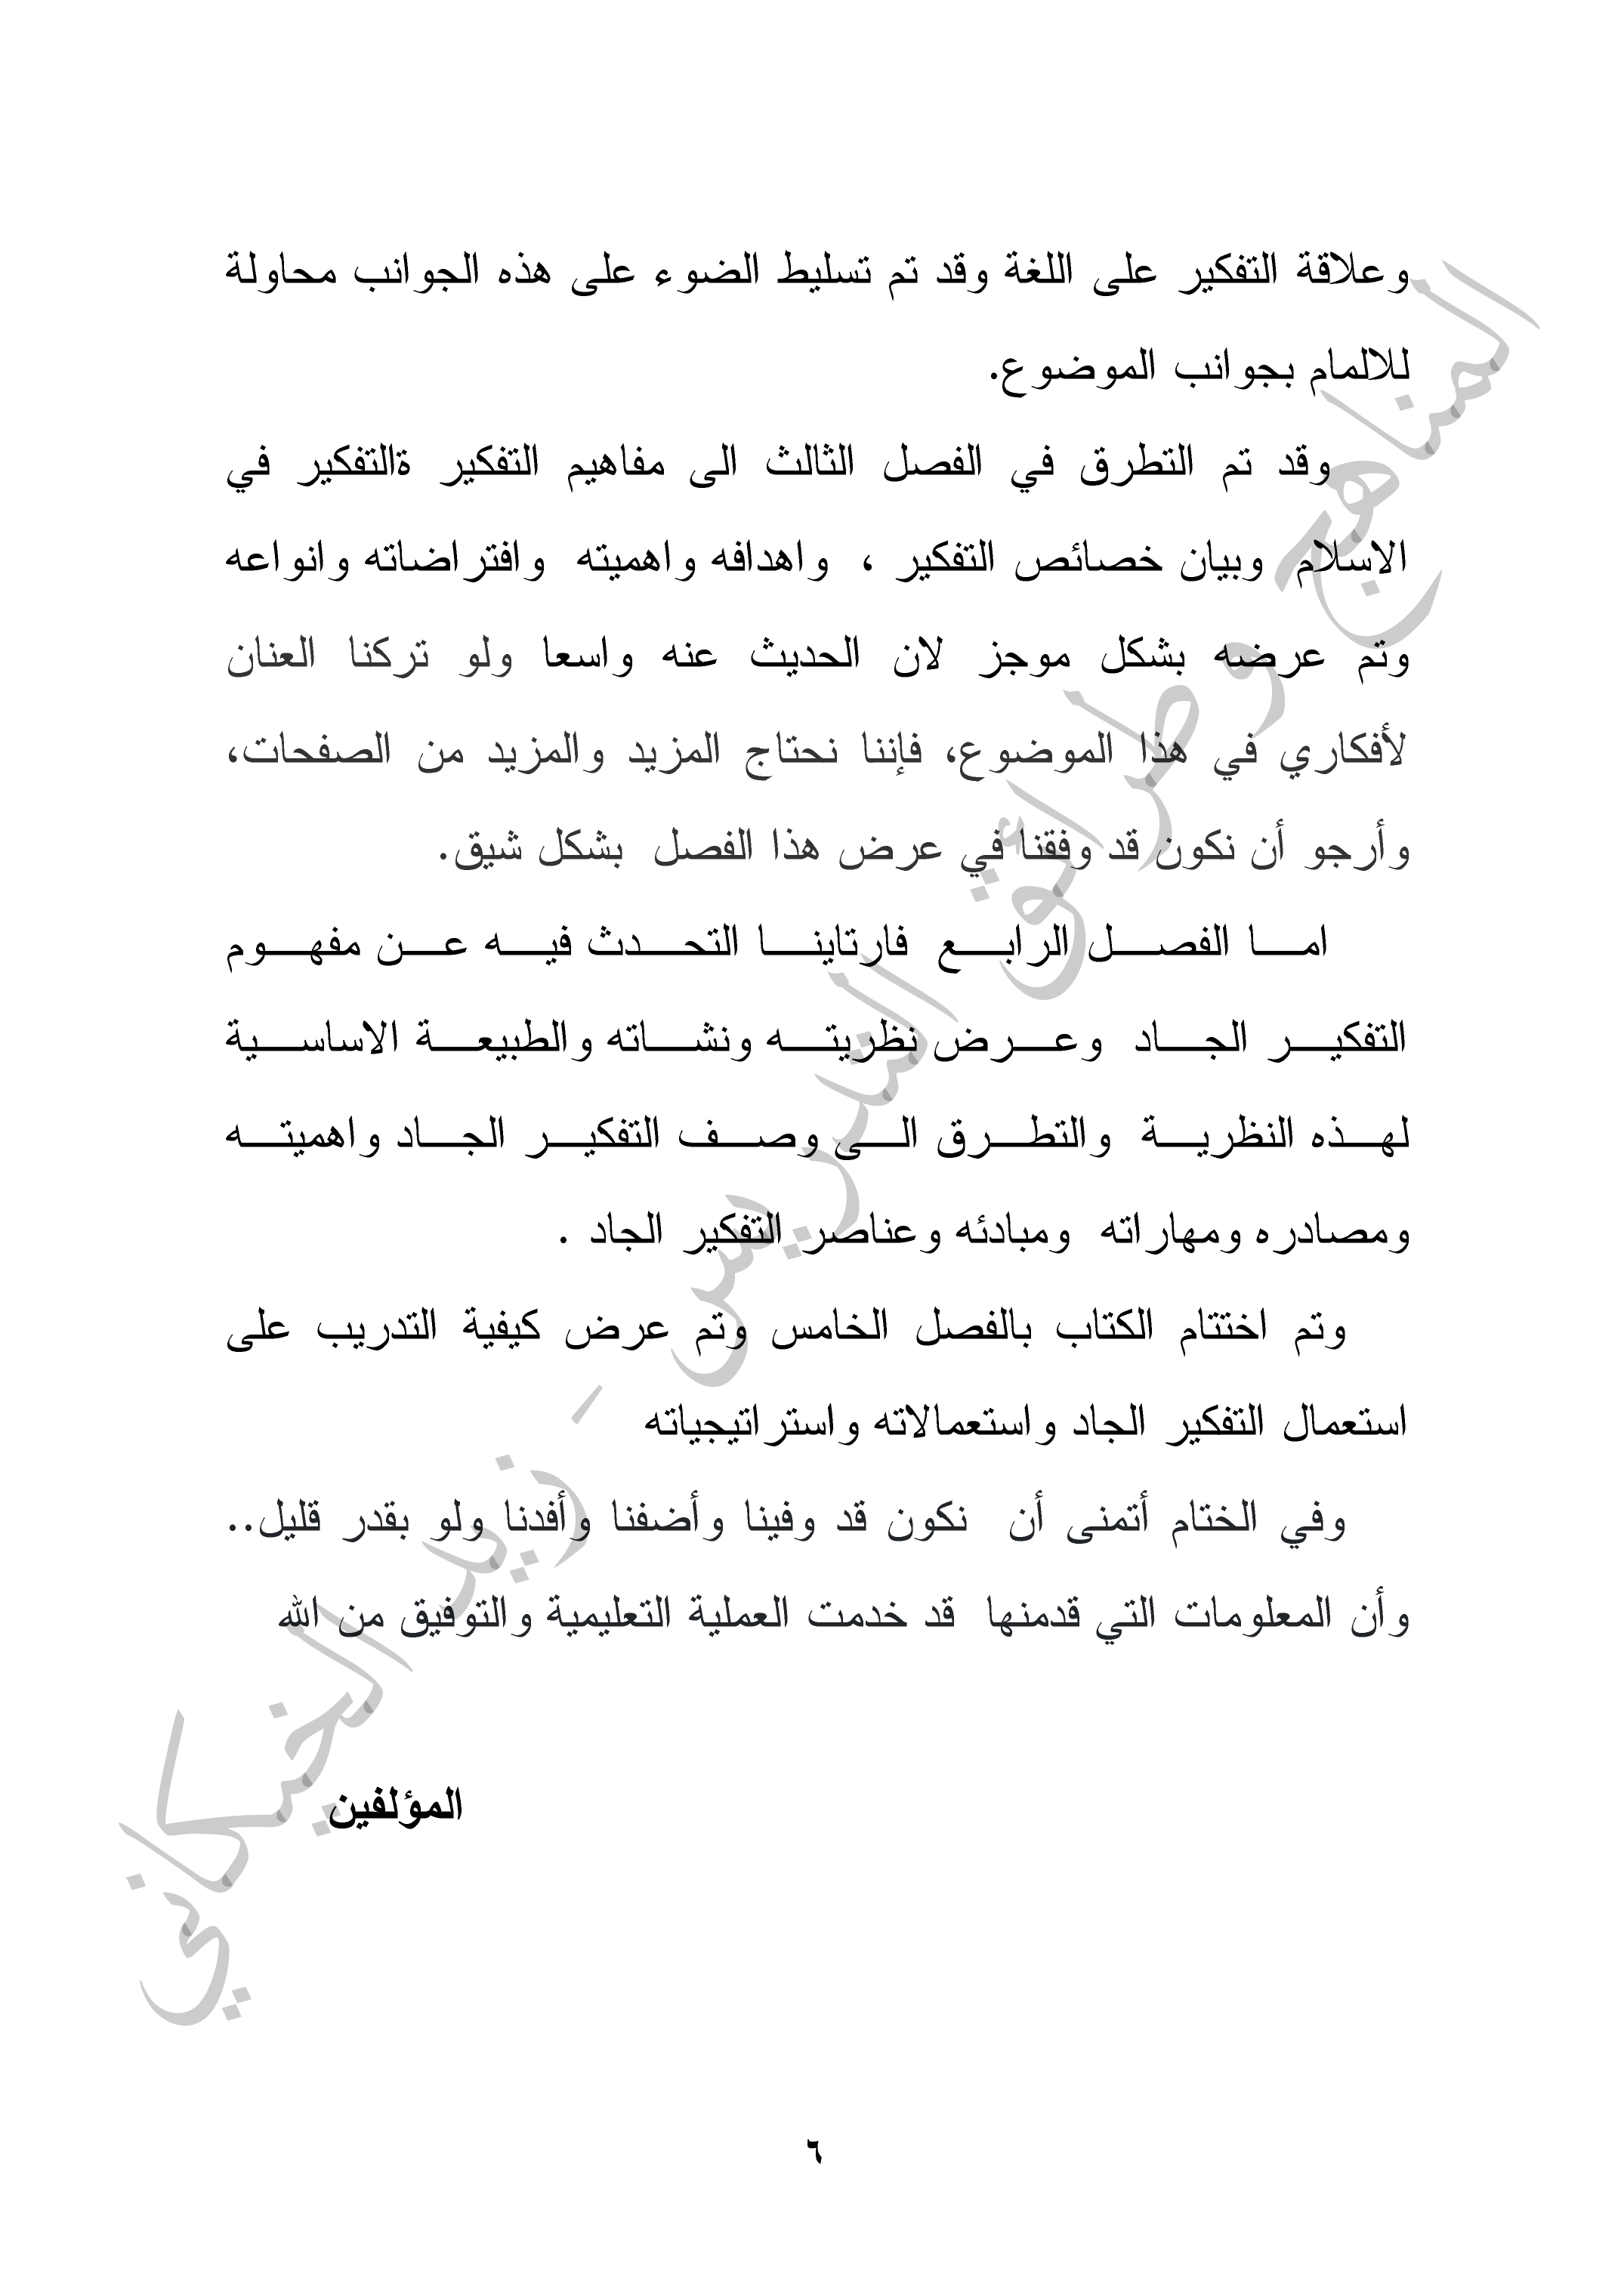 وعلاقة التفكير على اللغة وقد تم تسليط الضوء على هذه الجوانب محاولة
للالمام بجوانب الموضوع.
وقد تم التطرق في الفصل الثالث الى مفاهيم التفكير ةالتفكير في
الاسلام وبيان خصائص التفكير ، واهدافه واهميته وافتراضاته وانواعه
وتم عرضه بشكل موجز لان الحديث عنه واسعا ولو تركنا العنان
لأفكاري في هذا الموضوع، فإننا نحتاج المزيد والمزيد من الصفحات،
وأرجو أن نكون قد وفقنا في عرض هذا الفصل بشكل شيق.
امـــا الفصـــل الرابـــع فارتاينـــا التحـــدث فيـــه عـــن مفهـــوم
التفكيـــر الجـــاد وعـــرض نظريتـــه ونشـــاته والطبيعـــة الاساســـية
لهـــذه النظريـــة والتطـــرق الـــى وصـــف التفكيـــر الجـــاد واهميتـــه
ومصادره ومهاراته ومبادئه وعناصر التفكير الجاد .
وتم اختتام الكتاب بالفصل الخامس وتم عرض كيفية التدريب على
استعمال التفكير الجاد واستعمالاته واستراتيجياته
وفي الختام أتمنى أن نكون قد وفينا وأضفنا وأفدنا ولو بقدر قليل..
وأن المعلومات التي قدمنها قد خدمت العملية التعليمية والتوفيق من الله
المؤلفين
٦
المناهج وطرائق التدريس - زيد الخيكاني